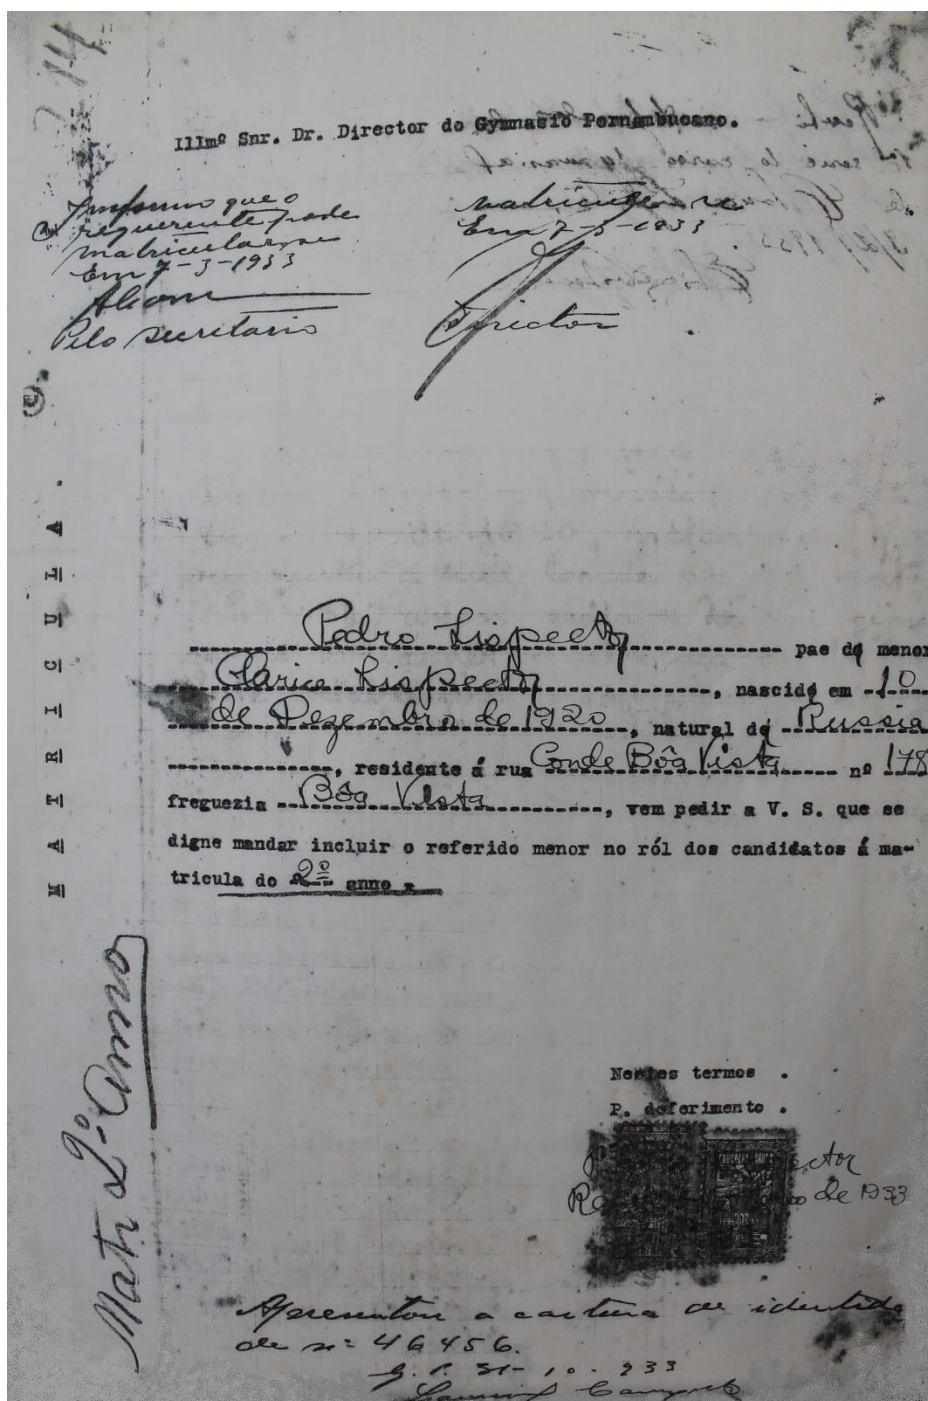 Illmº Snr. Dr. Director do Gymnasio Pernambucano.
Informo que o
requerente pode
matricular-se
Em 7-3-1933
Pelo secretario
matricule-se
Em 7-3-1933
Director
MATRICULA.
Pedro Lispector pae de menor
Clarice Lispector, nascido em 10
de Dezembro de 1920, natural de Russia
, residente á rua Conde Bôa Vista nº 178
freguezia Bôa Vista, vem pedir a V. S. que se
digne mandar incluir o referido menor no ról dos candidatos á ma-
tricula do 2º anno.
Matr 2º anno
Nestes termos.
P. deferimento.
de 1933
Apresentou a carteira de identida
de nº 46456.
31-10-933